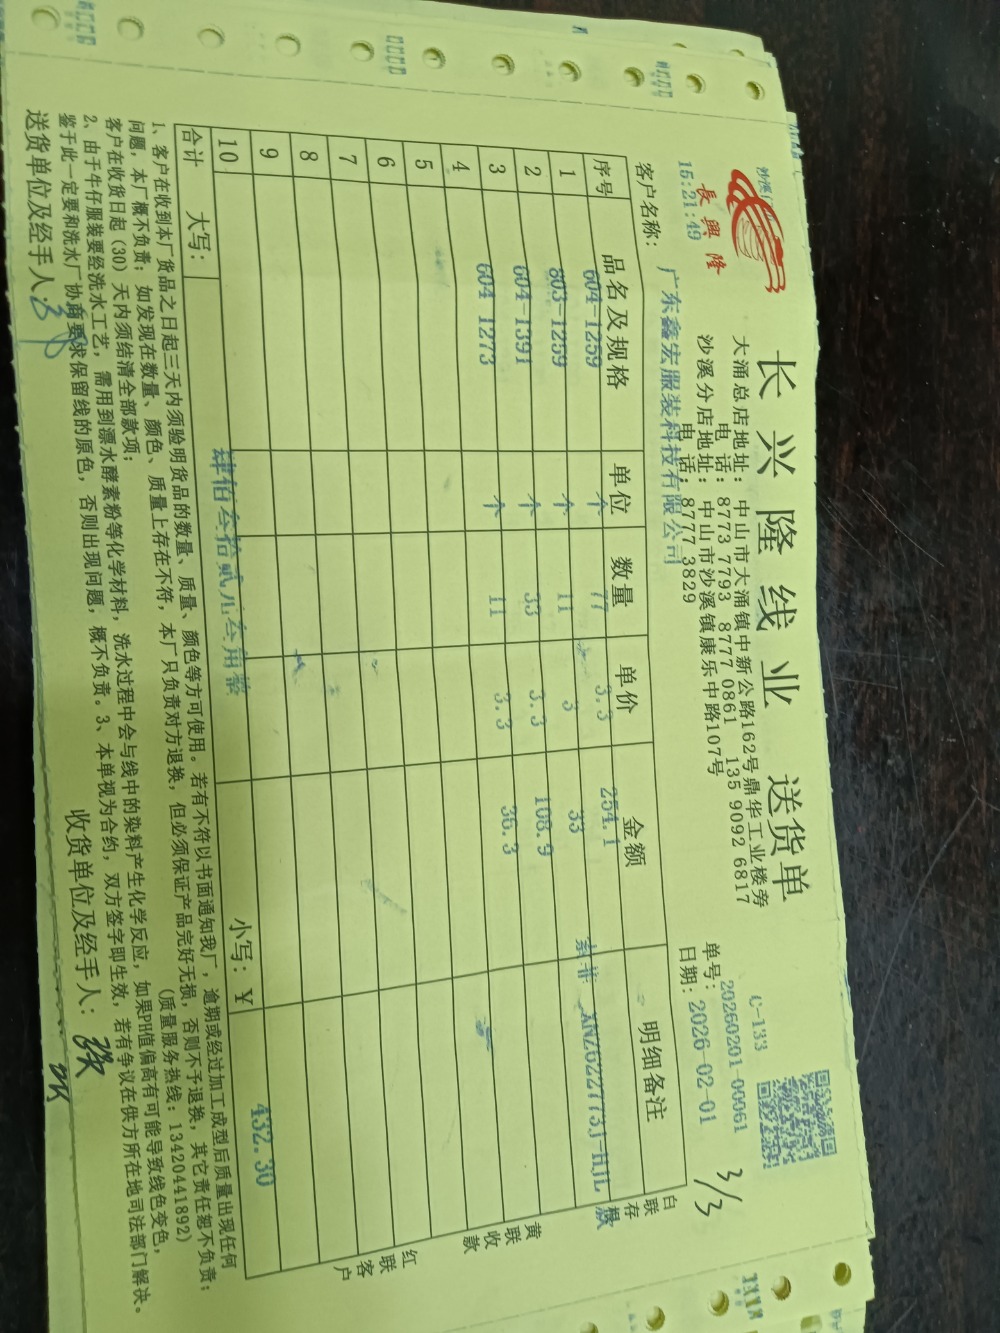 长兴隆线业 送货单
長興隆
沙溪
15:21:49
大涌总店地址：中山市大涌镇中新公路162号鼎华工业楼旁
电 话：8773 7793 8777 0861 135 9092 6817
沙溪分店地址：中山市沙溪镇康乐中路107号
电 话：8777 3829
C-133
单号：20260201-00061
日期：2026-02-01
3/3
客户名称：广东鑫宏服装科技有限公司
序号 品名及规格 单位 数量 单价 金额 明细备注
604-1259 个 77 3.3 254.1 ANZ622773J-HJL款
1 803-1259 个 11 3 33
2 604-1391 个 33 3.3 108.9
3 604 1273 个 11 3.3 36.3
4
5
6
7
8
9
10
合计 大写：肆佰叁拾贰元叁角整 小写：￥ 432.30
白联存根
黄联收款
红联客户
1、客户在收到本厂货品之日起三天内须验明货品的数量、质量、颜色等方可使用。若有不符以书面通知我厂，逾期或经过加工成型后质量出现任何
问题，本厂概不负责；如发现在数量、颜色、质量上存在不符，本厂只负责对方退换，但必须保证产品完好无损，否则不予退换，其它责任恕不负责；
客户在收货日起（30）天内须结清全部款项； （质量服务热线：13420441892）
2、由于牛仔服装要经洗水工艺，需用到漂水酵素粉等化学材料，洗水过程中会与线中的染料产生化学反应，如果PH值偏高有可能导致线色变色，
鉴于此一定要和洗水厂协商要求保留线的原色，否则出现问题，概不负责。3、本单视为合约，双方签字即生效，若有争议在供方所在地司法部门解决。
送货单位及经手人：
收货单位及经手人：